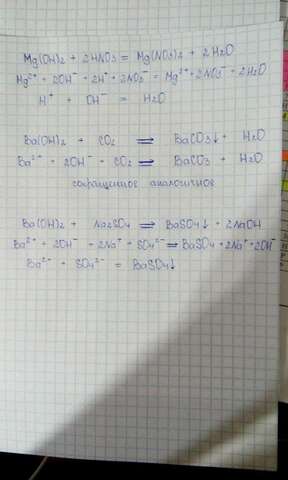 Mg(OH)₂ + 2HNO₃ = Mg(NO₃)₂ + 2H₂O
Mg²⁺ + 2OH⁻ + 2H⁺ + 2NO₃⁻ = Mg²⁺ + 2NO₃⁻ + 2H₂O
H⁺ + OH⁻ = H₂O
Ba(OH)₂ + CO₂ ⇌ BaCO₃↓ + H₂O
Ba²⁺ + 2OH⁻ + CO₂ ⇌ BaCO₃ + H₂O
сокращенное аналогичное
Ba(OH)₂ + Na₂SO₄ ⇌ BaSO₄↓ + 2NaOH
Ba²⁺ + 2OH⁻ + 2Na⁺ + SO₄²⁻ ⇌ BaSO₄ + 2Na⁺ + 2OH⁻
Ba²⁺ + SO₄²⁻ = BaSO₄↓